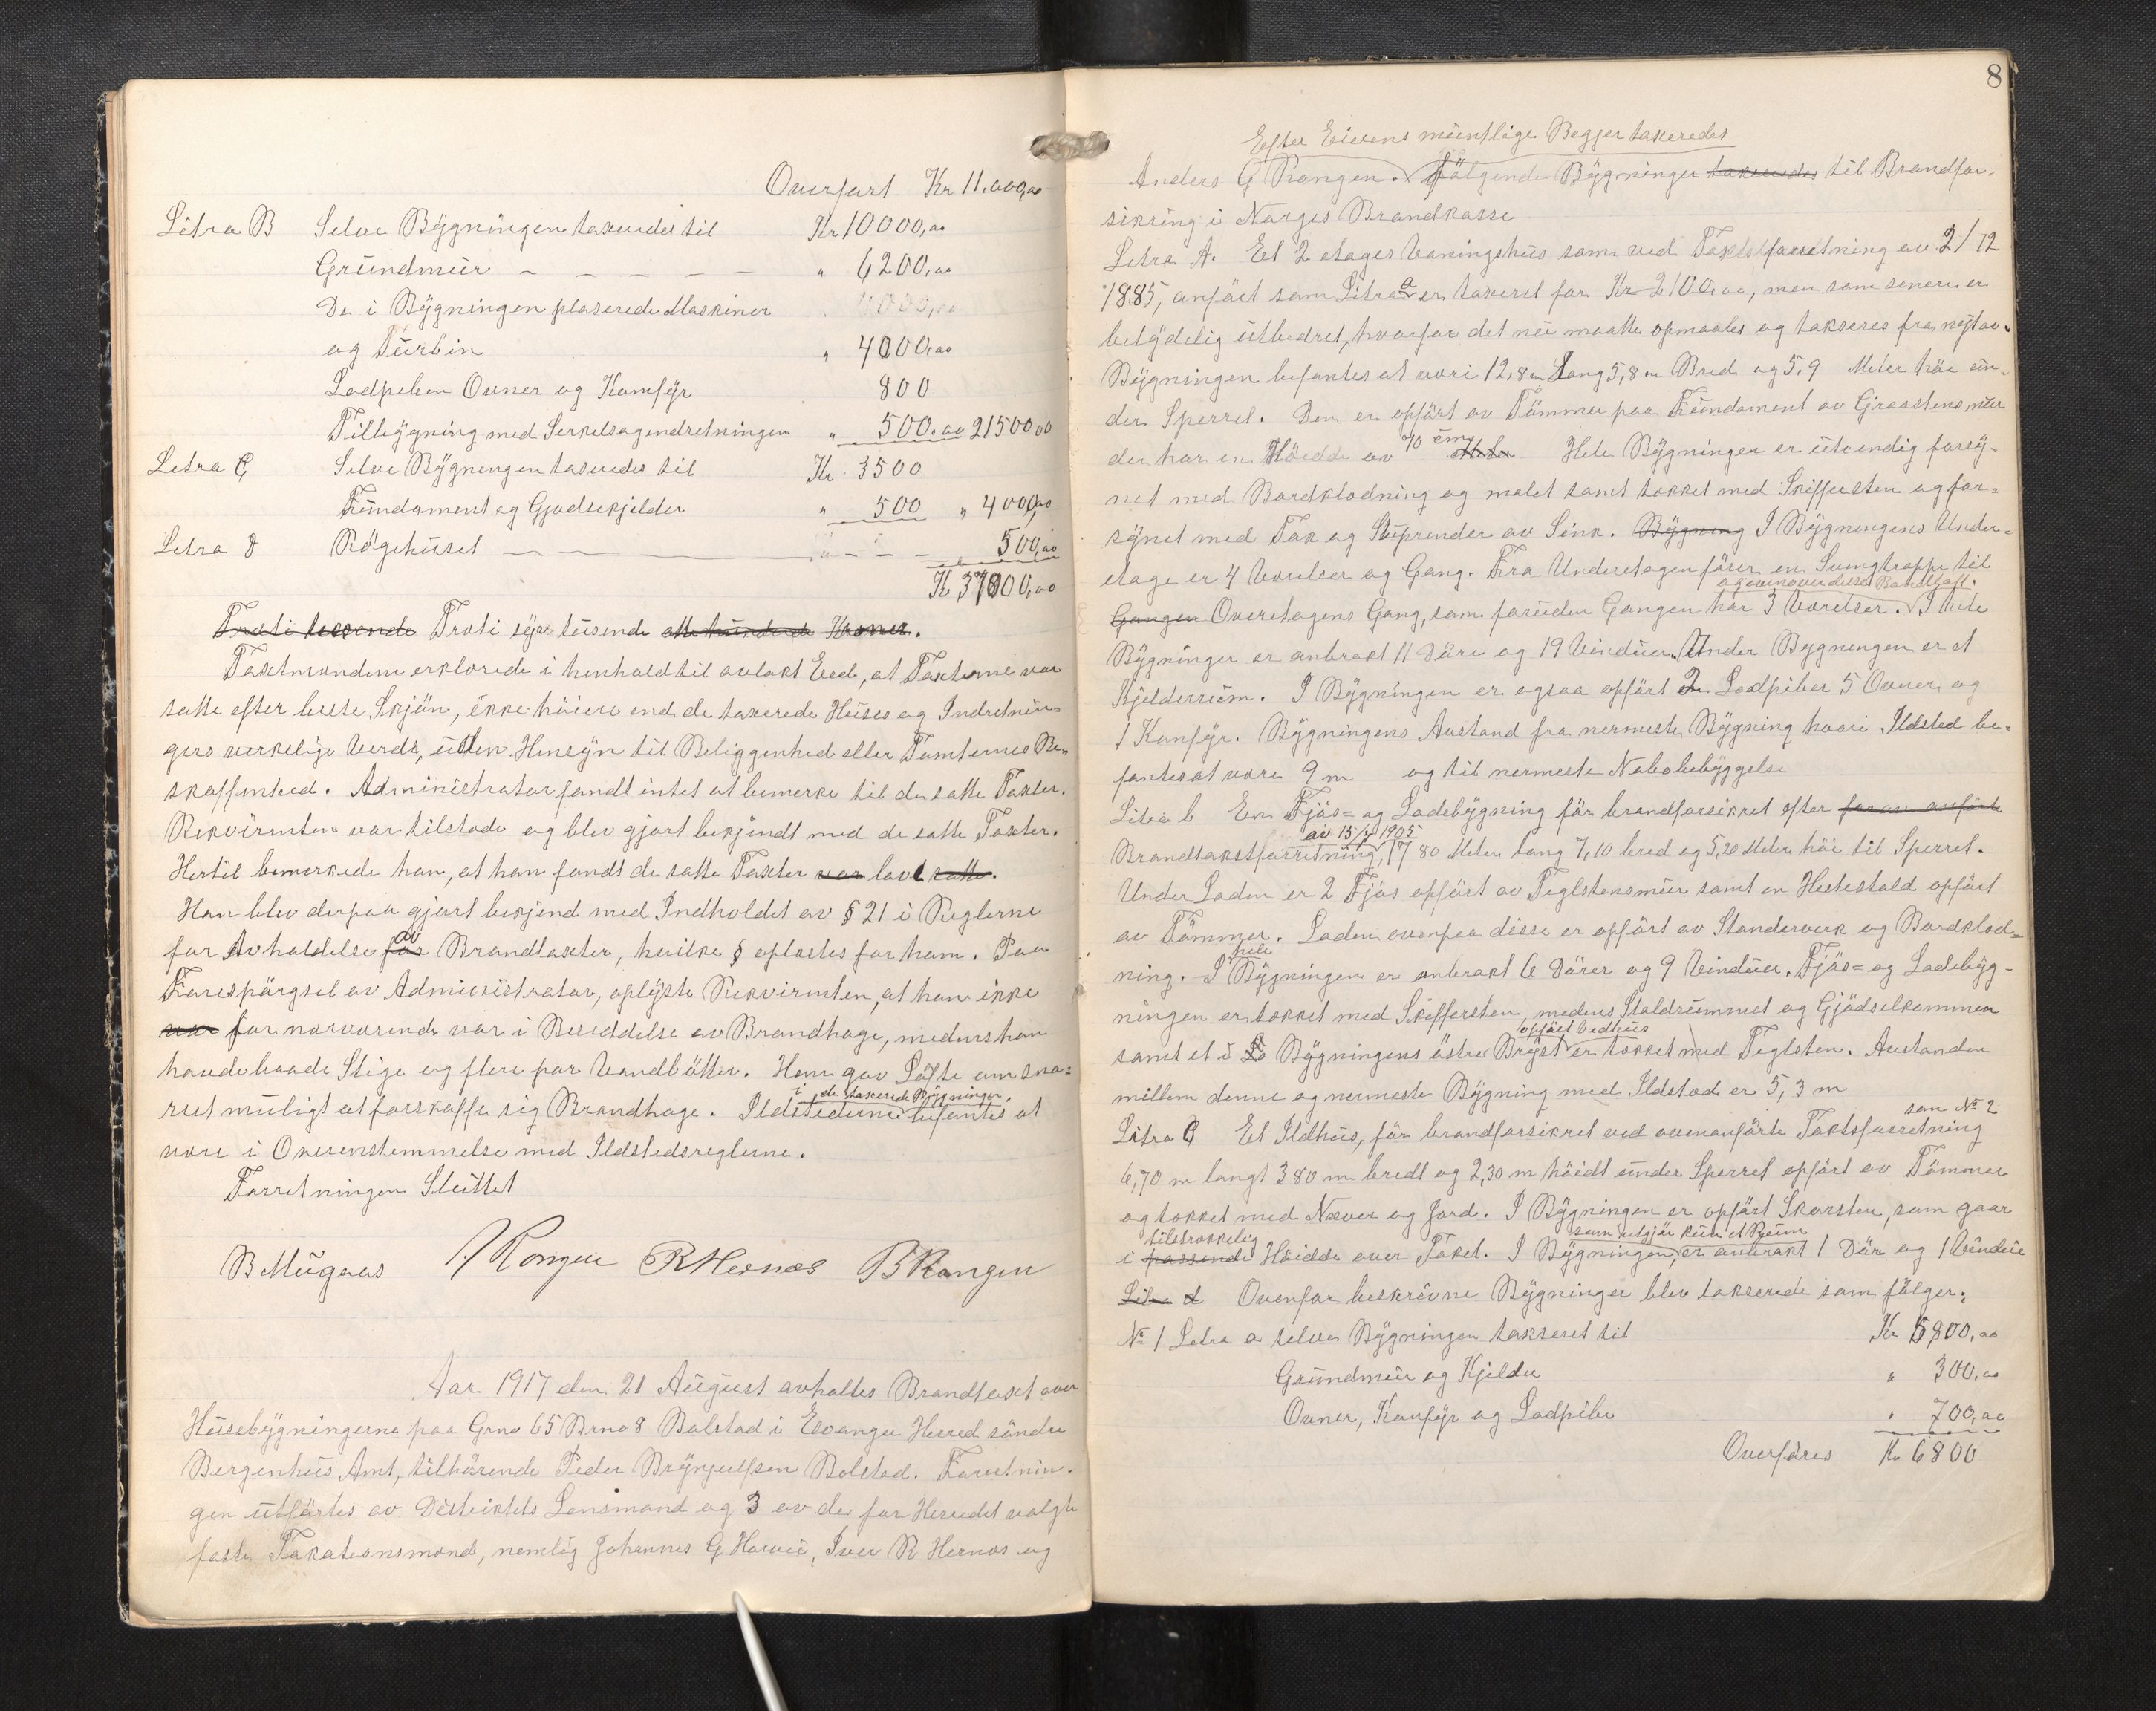 Overfört Kr 11.000,00
Litra B Selve Bÿgningen taxeredes til Kr 10000,00
Grundmür – – – – – " 6200,00
De i Bÿgningen plaserede Maskiner
og Türbin " 4000,00
Lodpiben Ovner og Komfÿr 800
Tilbÿgning med Serkelsagendretningen " 500.00 21500 00
Litra C Selve Bÿgningen taxeredes til Kr 3500
Fündament og Gjødselkjelder " 500 " 4000,00
Litra D Rögehüset — — — 500,00
Kr 37000,00
Treti tusende Treti sÿv tüsende otte hündrede Kroner.
Taxtmændene erklærede i henhold til avlakt Eed, at Taxterne var
satte efter beste Skjön, ikke höiere end de taxerede Hüses og Indretnin=
gers verkelige Verdi, üden Hensÿn til Beliggenhed eller Tomternes Be-
skaffenhed. Administrator fandt intet at bemerke til de satte Taxter.
Rekvirenten var tilstede og blev gjort bekjendt med de satte Taxter.
Hertil bemerkede han, at han fandt de satte Taxter var lavt satte.
Han blev derpaa gjort bekjend med Indholdet av § 21 i Reglerne
for Avholdelse for av Brandtaxter, hvilke § oplæstes for ham. Paa
Forespörgsel av Administrator, oplÿste Rekvirenten, at han ikke
var for nærværende var i Besiddelse av Brandhage, medens han
havde baade Stige og flere par Vandbötter. Han gav Löfte om sna=
rest müligt at forskaffe sig Brandhage. Ildstederne i de taxerede Bÿgninger, befantes at
være i Overenstemmelse med Ildstedsreglerne.
Forretningen Slüttet
B Mügaas A Rongen R Hernæs B Rongen
Aar 1917 den 21 August avholtes Brandtaxt over
Hüsebÿgningerne paa Grno 65 Brno 8 Bolstad i Evanger Herred söndre
Bergenhüs Amt, tilhörende Peder Brÿnjulfsen Bolstad. Forretnin-
gen ütförtes av Distriktets Lensmand og 3 av de for Herredet valgte
faste Takationsmænd, nemlig Johannes G Horvei, Iver R Hernæs og
8
Efter Eierens müntlige Begjer taxeredes
Anders G Rongen. fölgende Bÿgninger taxeredes til Brandfor-
sikring i Norges Brandkasse
Litra A. Et 2 etages Vaningshüs som ved Taxtsforretning av 2/12
1885, anfört som Litra a er taxeret for Kr 2100,00, men som senere er
betÿdelig ütbedret, hvorfor det nü maatte opmaales og takseres fra nÿt av.
Bÿgningen befantes at være 12,8 m Lang 5,8 m Bred og 5,9 Meter höi ün-
der Sperret. Den er opfört av Tömmer paa Fündament av Graastensmür
der har en Höidde av 70 cm Meter Hele Bÿgningen er ütvendig forsÿ-
net med Bordklædning og malet samt tækket med Skiffersten og for=
sÿnet med Tak og Stüprender av Sink. Bÿgning I Bÿgningens Under=
etage er 4 Værelser og Gang. Fra Underetagen förer en Svingtrappe til
Gangen Overetagens Gang, som foruden Gangen har 3 Værelser. og ovenover disse Randloft. I hele
Bÿgningen er anbrakt 11 Döre og 19 Vindüer. Under Bygningen er et
Kjelderrüm. I Bÿgningen er ogsaa opfört 2 Lodpiber 5 Ovner og
1 Komfÿr. Bÿgningens Avstand fra nermeste Bÿgning hvori Ildsted be-
fantes at være 9 m og til nermeste Nabobebÿggelse
Litra b En Fjös= og Ladebÿgning för brandforsikret efter foran anförte
Brandtakstforretning, av 15/7 1905 17 80 Meter lang 7,10 bred og 5,20 Meter höi til Sperret.
Under Laden er 2 Fjös opfört av Teglstensmür samt en Hestestald opfört
av Tömmer. Laden ovenpaa disse er opfört av Standerverk og Bordklæd=
ning. I hele Bÿgningen er anbrakt 6 Dörer og 9 Vindüer. Fjös= og Ladebÿg-
ningen er tækket med Skiffersten, medens Staldrümmet og Gjödselkommen
samt et i Bÿgningens östre Brÿst opfört Vedhüs er tækket med Teglsten. Avstanden
mellem denne og nermeste Bÿgning med Ildsted er 5,3 m
Litra C Et Ildhüs, för brandforsikret ved ovenanförte Takstforretning som No 2
6,70 m langt 3 80 m bredt og 2,30 m höidt ünder Sperret opfört av Tömmer
og tækket med Næver og Jord. I Bÿgningen er opfört Skorsten, som gaar
i passende tilstrækkelig Höidde over Taket. I Bÿgningen, som udgjör kün et Rüm er anbrakt 1 Dör og 1 Vindüe
Litra d Ovenfor beskrivne Bÿgninger blev takserede som fölger:
No 1 Litra a selve Bÿgningen takseret til Kr 5800,00
Grundmür og Kjelder " 300,00
Ovner, Komfÿr og Lodpibe " 700,00
Overföres Kr 6800